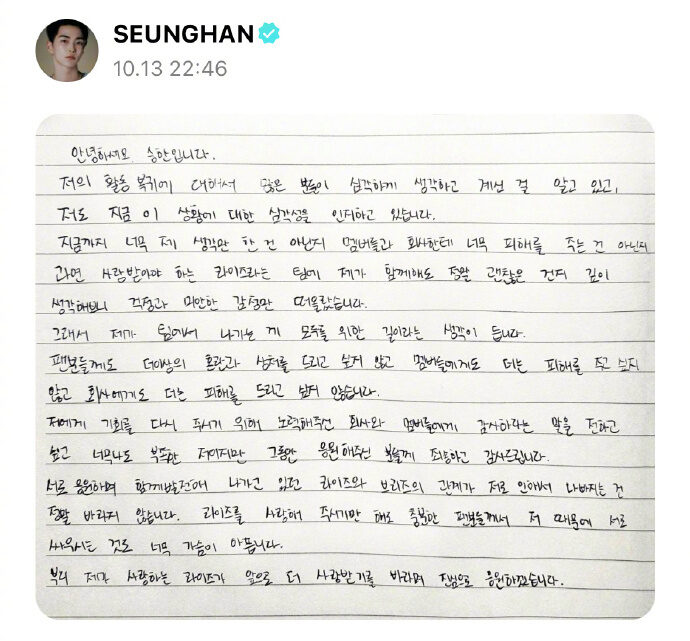 SEUNGHAN
10.13 22:46
안녕하세요 승한입니다.
저의 활동 복귀에 대해서 많은 분들이 심각하게 생각하고 계신 걸 알고 있고,
저도 지금 이 상황에 대한 심각성을 인지하고 있습니다.
지금까지 너무 제 생각만 한 건 아닌지 멤버들과 회사한테 너무 피해를 주는 건 아닌지
과연 사랑받아야 하는 라이즈라는 팀에 제가 함께해도 정말 괜찮은 건지 깊이
생각해보니 걱정과 미안한 감정만 떠올랐습니다.
그래서 제가 팀에서 나가는 게 모두를 위한 길이라는 생각이 듭니다.
팬분들께도 더이상의 혼란과 상처를 드리고 싶지 않고 멤버들에게도 더는 피해를 주고 싶지
않고 회사에게도 더는 피해를 드리고 싶지 않습니다.
저에게 기회를 다시 주시기 위해 노력해주신 회사와 멤버들에게 감사하다는 말을 전하고
싶고 너무나도 부족한 저이지만 그동안 응원해주신 분들께 죄송하고 감사드립니다.
서로 응원하며 함께 발전해 나가고 있던 라이즈와 브리즈의 관계가 저로 인해서 나빠지는 건
정말 바라지 않습니다. 라이즈를 사랑해 주시기만 해도 충분한 팬분들께서 저 때문에 서로
싸우시는 것도 너무 가슴이 아픕니다.
부디 제가 사랑하는 라이즈가 앞으로 더 사랑받기를 바라며 진심으로 응원하겠습니다.